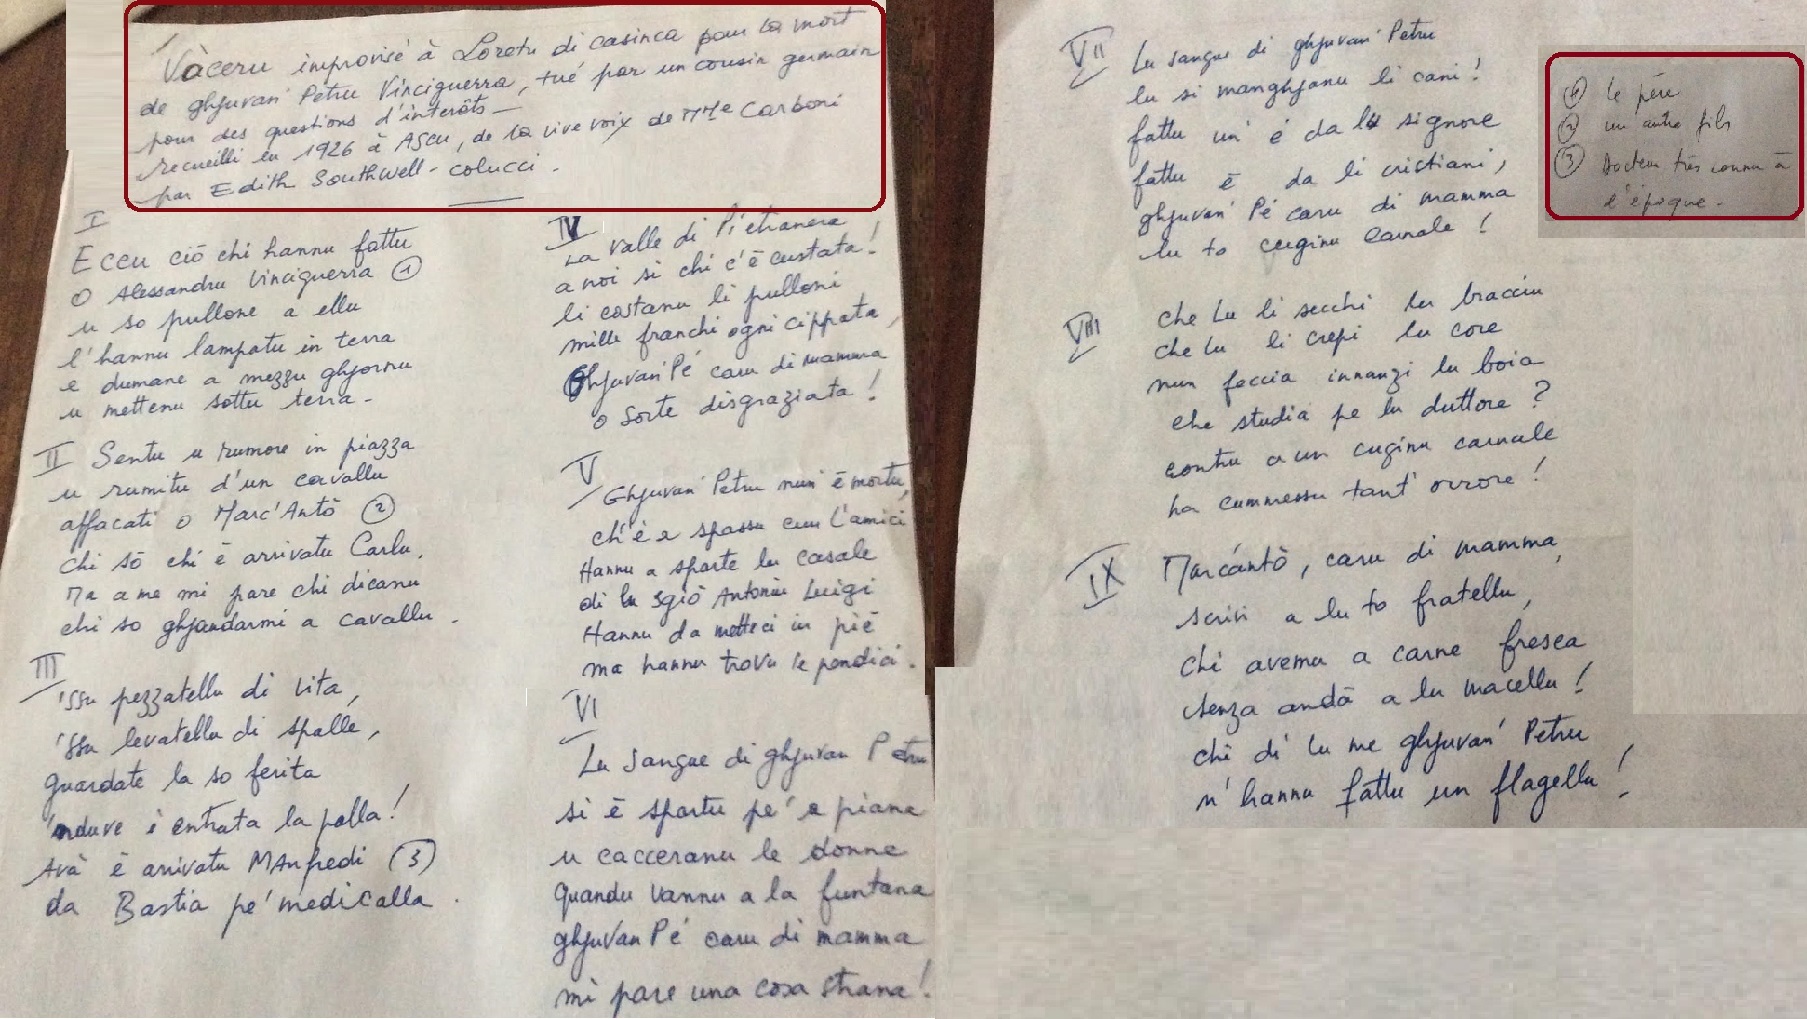 Vàceru improvisé à Loretu di casinca pour la mort
de ghjuvan' Petru Vinciguerra, tué par un cousin germain
pour des questions d'interêts —
recueilli en 1926 à Ascu, de la vive voix de Mme Carboni
par Edith Southwell-colucci.
I
Eccu ciō chi hannu fattu
O Alessandru Vinciguerra ①
u so pullone a ellu
l'hannu lampatu in terra
e dumane a mezzu ghjornu
u mettenu sottu terra.
II Sentu u rumore in piazza
u rumitu d'un cavallu
affacati o Marc'Antō ②
chi sō chi ē arrivatu Carlu.
Ma a me mi pare chi dicanu
chi so ghjandarmi a cavallu.
III
'Ssu pezzatellu di vita,
'ssu levatellu di spalle,
guardate la so ferita
'nduve è entrata la palla!
Avà è arrivatu MAnfredi (3)
da Bastia pe' medicalla.
IV
La valle di Pietranera
a noi si chi c'ē custata!
li costanu li pulloni
mille franchi ogni cippata,
Ghjuvan' Pé caru di mamma
o Sorte disgraziata!
V
Ghjuvan' Petru nun' ē mortu,
ch'ē a spassu cun l'amici
Hannu a sparte lu casale
di lu Sgiō Antoniu Luigi
Hannu da metteci in piē
ma hannu trovu le pendici.
VI
Lu Sangue di ghjuvan Petru
si ē spartu pe' e piane
u cacceranu le donne
quandu vannu a la funtana
ghjuvan Pé caru di mamma
mi pare una cosa strana!
VII
Lu sangue di ghjuvan' Petru
lu si manghjanu li cani!
fattu un' é da lu signore
fattu ē da li cristiani,
ghjuvan' Pé caru di mamma
lu to cuginu carnale!
VIII
che Lu li secchi lu bracciu
che lu li crepi lu core
nun faccia innanzi lu boia
che studia pe lu duttore?
contru a un cuginu carnale
ha cummessu tant' orrore!
IX
Marcántō, caru di mamma,
scrivi a lu to fratellu,
chi avemu a carne fresca
senza andā a lu macellu!
chi di lu me ghjuvan' Petru
n'hannu fattu un flagellu!
① le père
② un autre fils
③ Docteur très connu à
l'époque.